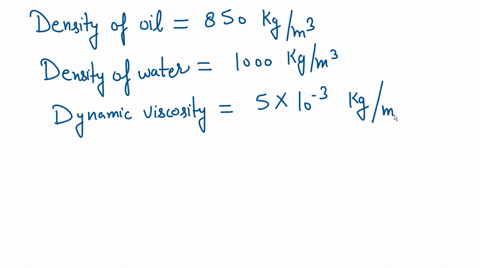 Density of oil = 850 Kg/m³
Density of water = 1000 Kg/m³
Dynamic viscosity = 5 × 10⁻³ Kg/m